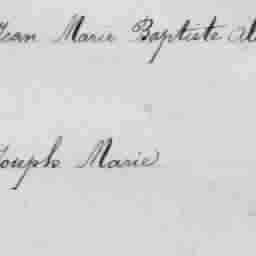 Jean Marie Baptiste
Joseph Marie